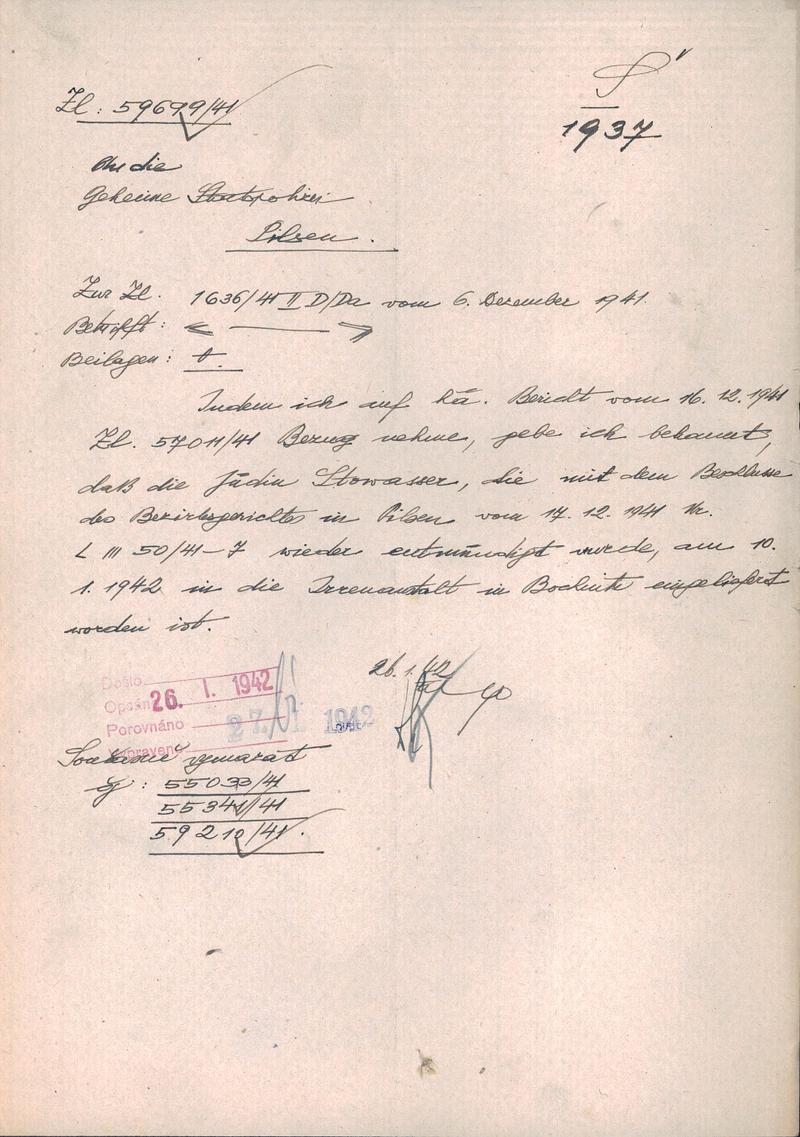 Zl: 59699/41
S
1937
An die
Geheime Staatspolizei
Pilsen.
Zur Zl. 1636/41 II D/Da vom 6. Dezember 1941.
Betrifft:
Beilagen:
Indem ich auf hä. Bericht vom 16. 12. 1941
Zl. 57011/41 Bezug nehme, gebe ich bekannt,
daß die Jüdin Stowasser, die mit dem Beschlusse
des Bezirksgerichtes in Pilsen vom 17. 12. 1941 Nr.
L III 50/41-7 wieder entmündigt wurde, am 10.
1. 1942 in die Irrenanstalt in eingeliefert
worden ist.
26. 1. 42
Došlo
Opsáno 26. I. 1942
Porovnáno 27. I. 1942
Vypraveno
Současně vymazat
čj: 55033/41
55341/41
59210/41.